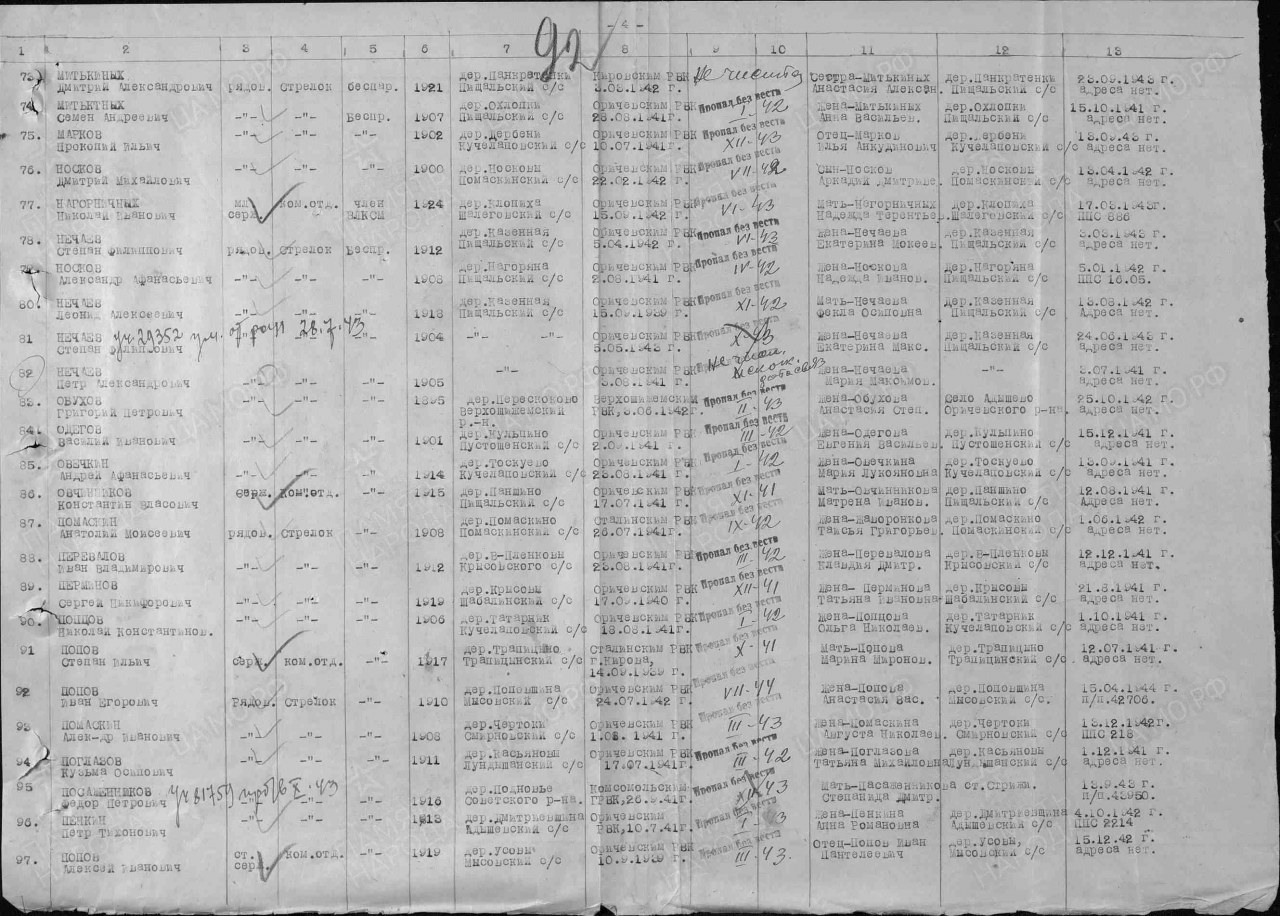 - 4 -
92
1 2 3 4 5 6 7 8 9 10 11 12 13
73. МИТЬКИНЫХ дер.Панкратенки Кировским РВК не числится Сестра-Митькиных дер.Панкратенки 23.09.1943 г.
Дмитрий Александрович рядов. стрелок беспр. 1921 Пищальский с/с 3.03.1942 г. Анастасия Алексан. Пищальский с/с адреса нет.
74. МИТЬКТНЫХ дер.Охлопки Оричевским РВК Пропал без вести Жена-Митькиных дер.Охлопки 15.10.1941 г.
Семен Андреевич -"- -"- Беспр. 1907 Пищальский с/с 28.08.1941г. I-42 Анна Васильев. Пищальский с/с адреса нет.
75. МАРКОВ -"- -"- -"- 1902 дер.Дербени Оричевским РВК Пропал без вести Отец-Марков дер.Дербени 13.09.43 г.
Прокопий Ильич Кучелаповский с/с 10.07.1941г. XII-43 Илья Анкудинович Кучелаповский с/с адреса нет.
76. НОСКОВ -"- -"- -"- 1900 дер.Носковы Оричевским РВК Пропал без вести Сын-Носков дер.Носковы 13.04.1942 г.
Дмитрий Михайлович Помаскинский с/с 22.02.1942 г. VII-42 Аркадий Дмитриев. Помаскинский с/с адреса нет.
77. НАГОРНИЧНЫХ мл. ком.отд. член 1924 дер.Клопиха Оричевским РВК Пропал без вести Мать-Негорничных дер.Клопиха 17.03.1943г.
Николай Иванович серж. ВЛКСМ Шалеговский с/с 15.09.1942 г. VI-43 Надежда Терентьев. Шалеговский с/с ППС 886
78. НЕЧАЕВ дер.Казенная Оричевским РВК Пропал без вести Жена-Нечаева дер.Казенная 3.03.1943 г.
Степан Филиппович рядов. стрелок Беспр. 1912 Пищальский с/с 5.04.1942 г. VI-43 Екатерина Мокеев. Пищальский с/с адреса нет.
НОСКОВ дер.Нагоряна Оричевским РВК Пропал без вести Жена-Носкова дер.Нагоряна 5.01.1942 г.
Александр Афанасьевич -"- -"- -"- 1908 Пищальский с/с 2.08.1941 г. IV-42 Надежда Иванов. Пищальский с/с ППС 16.05.
80. НЕЧАЕВ дер.Казенная Оричевским РВК Пропал без вести Мать-Нечаева дер.Казенная 13.08.1942 г.
Леонид Алексеевич -"- -"- -"- 1918 Пищальский с/с 15.09.1939 г. XI-42 Фекла Осиповна Пищальский с/с адреса нет.
81 НЕЧАЕВ уч.29352 28.7.43 -"- 1904 -"- -"- Оричевским РВК Пропал без вести Жена-Нечаева дер.Казенная 24.06.1943 г.
Степан Филиппович 5.05.1943 г. Екатерина Макс. Пищальский с/с адреса нет.
82 НЕЧАЕВ -"- Оричевским РВК Не Жена-Нечаева -"- 3.07.1941 г.
Петр Александрович -"- -"- -"- 1905 3.08.1941 г. Мария Максимов. адреса нет.
83. ОБУХОВ -"- -"- -"- 1895 дер.Пересколово Верхошижемским Пропал без вести Жена-Обухова Село Адышево 25.10.1942 г.
Григорий Петрович Верхошижемский РВК,3.06.1942г. II-43 Анастасия Степ. Оричевского р-на. адреса нет.
р.-н.
84. ОДЕГОВ дер.Кульпино Оричевским РВК Пропал без вести Жена-Одегова дер.Кульпино 15.12.1941 г.
Василий Иванович -"- -"- -"- 1901 Пустошенский с/с 2.09.1941 г. III-42 Евгения Васильев. Пустошенский с/с адреса нет.
85. ОВЕЧКИН дер.Тоскуево Оричевским РВК Пропал без вести Жена-Овечкина дер.Тоскуево 13.09.1941 г.
Андрей Афанасьевич -"- -"- -"- 1914 Кучелаповский с/с 23.08.1941 г. I-42 Мария Лукояновна Кучелаповский с/с адреса нет.
86. ОВЧИННИКОВ серж. ком.отд. -"- 1915 дер.Паншино Оричевским РВК Пропал без вести Мать-Овчинникова дер.Паншино 12.08.1941 г.
Константин Власович Пищальский с/с 17.07.1941 г. XI-41 Матрена Иванов. Пищальский с/с Адреса нет.
87. ПОМАСКИН дер.Помаскино Сталинским РВК Пропал без вести Жена-Жаворонкова дер.Помаскино 1.06.1942 г.
Анатолий Моисеевич рядов. Стрелок -"- 1908 Помаскинский с/с 26.07.1941 г. IX-42 Таисья Григорьев. Помаскинский с/с адреса нет.
88. ПЕРЕВАЛОВ дер.В-Пленковы Оричевским РВК Пропал без вести Жена-Перевалова дер.В-Пленковы 12.12.1941 г.
Иван Владимирович -"- -"- -"- 1912 Крысовского с/с 23.08.1941г. III-42 Клавдия Дмитр. Крысовский с/с адреса нет.
89. ПЕРМИНОВ дер.Крысовы Оричевским РВК Пропал без вести Жена- Перминова дер.Крысовы 21.8.1941 г.
Сергей Никифорович -"- -"- -"- 1919 Шабалинский с/с 17.09.1940 г. XII-41 Татьяна Ивановна Шабалинский с/с адреса нет.
90. ПОПЦОВ -"- -"- -"- 1906 дер.Татарник Оричевским РВК Пропал без вести Жена-Попцова дер.Татарник 1.10.1941 г.
Николай Константинов. Кучелаповский с/с 18.08.1941г. I-42 Ольга Николаев. Кучелаповский с/с адреса нет.
91 ПОПОВ дер.Трапицыно Сталинским РВК Пропал без вести Мать-Попова дер.Трапицыно 12.07.1941 г.
Степан Ильич серж. ком.отд. -"- 1917 Трапицынский с/с г.Кирова, X-41 Марина Миронов. Трапицинский с/с адреса нет.
14.09.1939 г.
92 ПОПОВ дер.Поповщина Оричевским РВК Пропал без вести Жена-Попова дер.Поповщина 15.04.1944 г.
Иван Егорович Рядов. Стрелок -"- 1910 Мысовский с/с 24.07.1942 г. VII-44 Анастасия Вас. Мысовский с/с. п/п.42706.
93 ПОМАСКИН дер.Чертоки Оричевским РВК Пропал без вести Жена-Помаскина дер.Чертоки 13.12.1942г.
Алек-др Иванович -"- -"- -"- 1908 Смирновский с/с 1.08.1941 г. III-43 Августа Николаев. Смирновский с/с ППС 213
94 ПОГЛАЗОВ -"- -"- -"- 1911 дер.Касьяновы Оричевским РВК Пропал без вести Жена-Поглазова дер.Касьяновы 1.12.1941 г.
Кузьма Осипович Лундышанский с/с 17.07.1941г. III-42 Татьяна Михайловна Лундышанский с/с адреса нет.
95 ПОСАЖЕННИКОВ уч81759 X.43 дер.Подновье Комсомольским Пропал без вести Мать-Пасаженникова ст.Стрижи. 13.9.43 г.
Федор Петрович -"- -"- -"- 1916 Советского р-на. ГРВК,26.9.41г. Степанида Дмитр. п/п.43950.
96. ПЕНКИН -"- -"- -"- 1913 дер.Дмитриевщина Оричевским Пропал без вести Жена-Пенкина дер.Дмитриевщина 4.10.1942 г.
Петр Тихонович Адышевский с/с РВК,10.7.41г. I-43 Анна Романовна Адышевский с/с ППС 2214
97. ПОПОВ ст. ком.отд. -"- 1919 дер.Усовы Оричевским РВК Пропал без вести Отец-Попов Иван дер.Усовы, 15.12.42 г.
Алексей Иванович серж. Мысовский с/с 10.9.1939 г. III-43. Пантелеевич Мысовский с/с адреса нет.